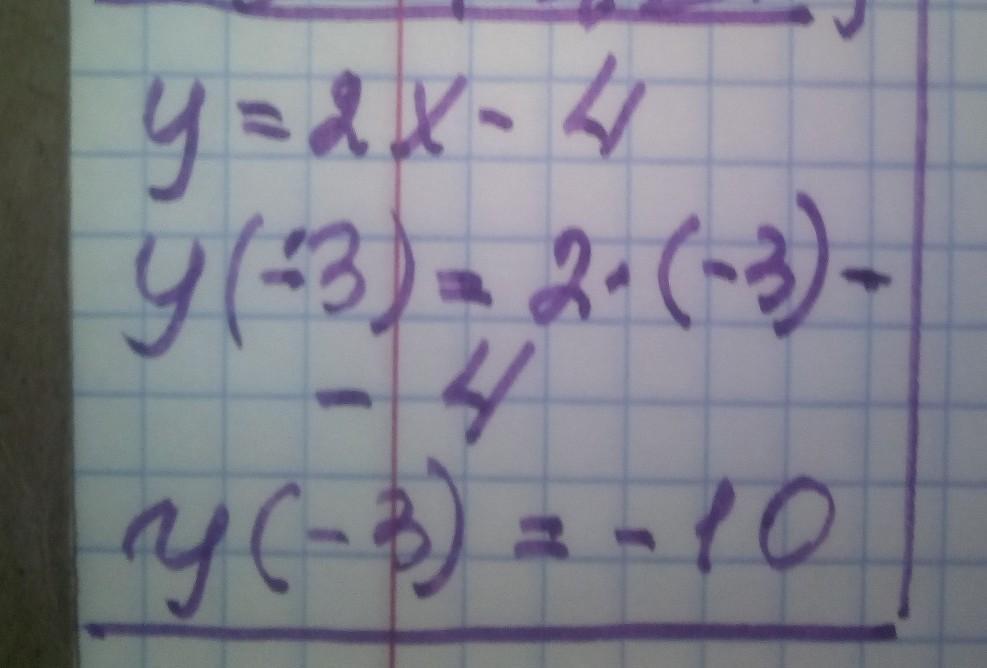 y = 2x - 4
y(-3) = 2 · (-3) -
- 4
y(-3) = -10